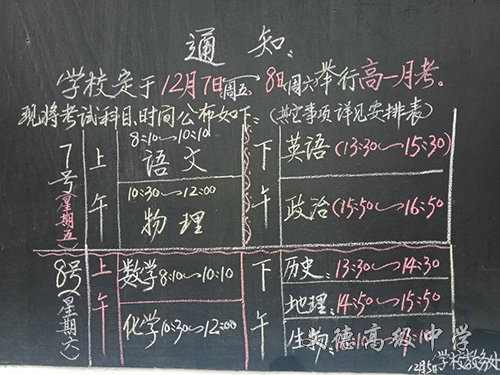 通知:
学校定于12月7日(周五)~8日(周六)举行高一月考。
现将考试科目、时间公布如下:(其它事项详见安排表)
7号(星期五)
上午
8:10~10:10
语文
10:30~12:00
物理
下午
英语(13:30~15:30)
政治(15:50~16:50)
8号(星期六)
上午
数学8:10~10:10
化学10:30~12:00
下午
历史:13:30~14:30
地理:14:50~15:50
生物
德高级中学
学校教务处
12月5日